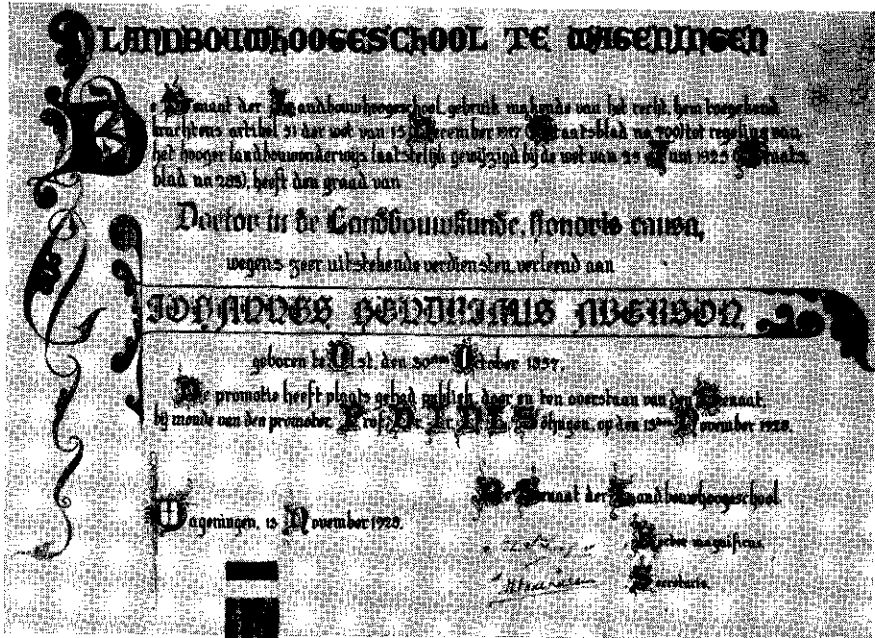 LANDBOUWHOOGESCHOOL TE WAGENINGEN
De Senaat der Landbouwhoogeschool, gebruik makende van het recht, hem toegekend
krachtens artikel 31 der wet van 15 December 1917 (Staatsblad no 700) tot regeling van
het hooger landbouwonderwijs laatstelijk gewijzigd bij de wet van 29 Juni 1925 (Staats,
blad no 283), heeft den graad van
Doctor in de Landbouwkunde, honoris causa,
wegens zeer uitstekende verdiensten, verleend aan
JOHANNES HENDRIKUS ABERSON,
geboren te Olst, den 30sten October 1857,
De promotie heeft plaats gehad publiek, door en ten overstaan van den Senaat,
bij monde van den promotor, Prof. Dr. Ir. N. L. Söhngen, op den 13den November 1928.
De Senaat der Landbouwhoogeschool
Wageningen, 13 November 1928.
Rector magnificus
Secretaris